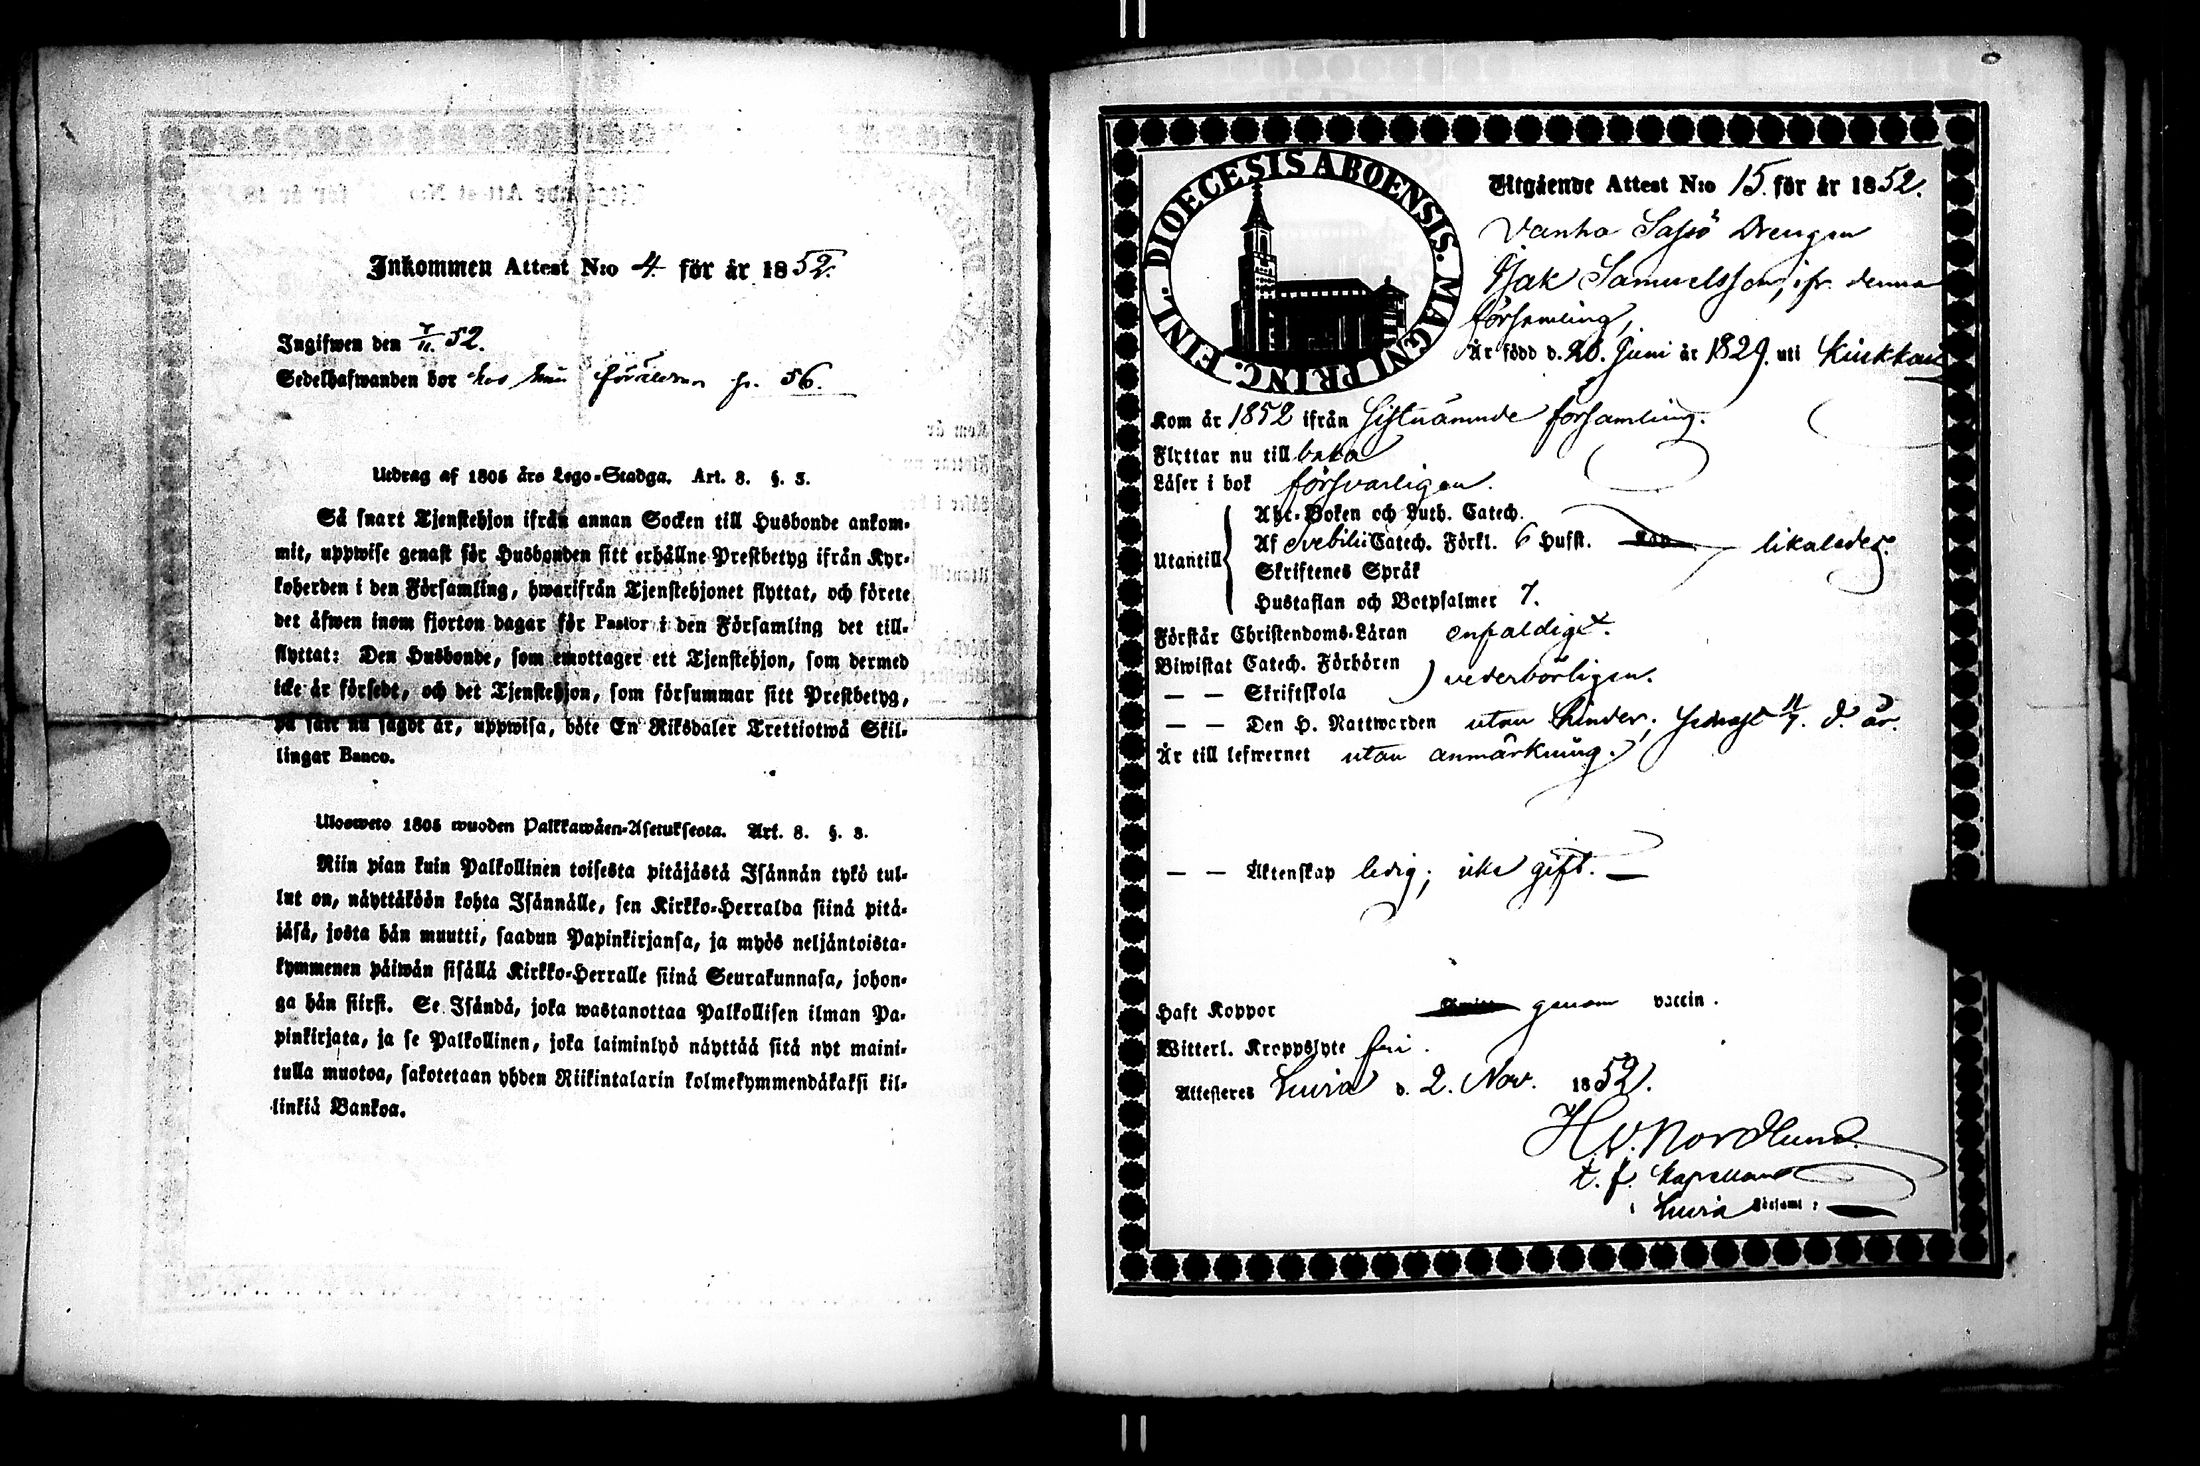 Inkommen Attest N:o 4 för år 1852.
Ingifwen den 7/11. 52.
Sedelhafwanden bor hos sina föräldrar p. 56.
Utdrag af 1805 års Lego-Stadga. Art. 8. §. 3.
Så snart Tjenstehjon ifrån annan Socken till Husbonde ankom-
mit, uppwise genast för Husbonden sitt erhållne Prestbetyg ifrån Kyr-
koherden i den Församling, hwarifrån Tjenstehjonet flyttat, och förete
det äfwen inom fjorton dagar för Pastor i den Församling det till-
flyttat: Den Husbonde, som emottager ett Tjenstehjon, som dermed
icke är försedt, och det Tjenstehjon, som försummar sitt Prestbetyg,
på sätt nu sagdt är, uppwisa, böte En Riksdaler Trettiotwå Skil-
lingar Banco.
Ulosweto 1805 wuoden Palkkawäen-Asetuksesta. Art. 8. §. 3.
Niin pian kuin Palkollinen toisesta pitäjästä Isännän tykö tul-
lut on, näyttäköön kohta Isännälle, sen Kirkko-Herralda siinä pitä-
jäsä, josta hän muutti, saadun Papinkirjansa, ja myös neljäntoista-
kymmenen päiwän sisällä Kirkko-Herralle siinä Seurakunnasa, johon-
ga hän siirsi. Se Isändä, joka wastanottaa Palkollisen ilman Pa-
pinkirjata, ja se Palkollinen, joka laiminlyö näyttää sitä nyt maini-
tulla muotoa, sakotetaan yhden Riikintalarin kolmekymmendäkaksi kil-
linkiä Bankoa.
DIOECESIS ABOENSIS. MAGNI PRINC. FINL.
Utgående Attest N:o 15. för år 1852.
Vanha Sassö Drengen
Isak Samuelsson, ifr. denna
församling,
Är född d. 20. Juni år 1829. uti Kiukkais
Kom år 1852 ifrån sistnämnde församling.
Flyttar nu till baka
Läser i bok försvarligen.
Abc-Boken och Luth. Catech.
Utantill Af Svebilii Catech. Förkl. 6 Hufst. likaledes.
Skriftenes Språk
Hustaflan och Botpsalmer 7.
Förstår Christendoms-Läran enfaldigt.
Biwistat Catech. Förhören
— — Skriftskola vederbörligen.
— — Den H. Nattwarden utan hinder; sednast 11/7. d. år.
Är till lefwernet utan anmärkning.
— — Äktenskap ledig; icke gift. —
Haft Koppor genom vaccin.
Witterl. Kroppslyte fri.
Attesteres Luvia d. 2. Nov. 1852.
H. V. Nordlund.
t. f. Kapellan
i Luvia Församl: